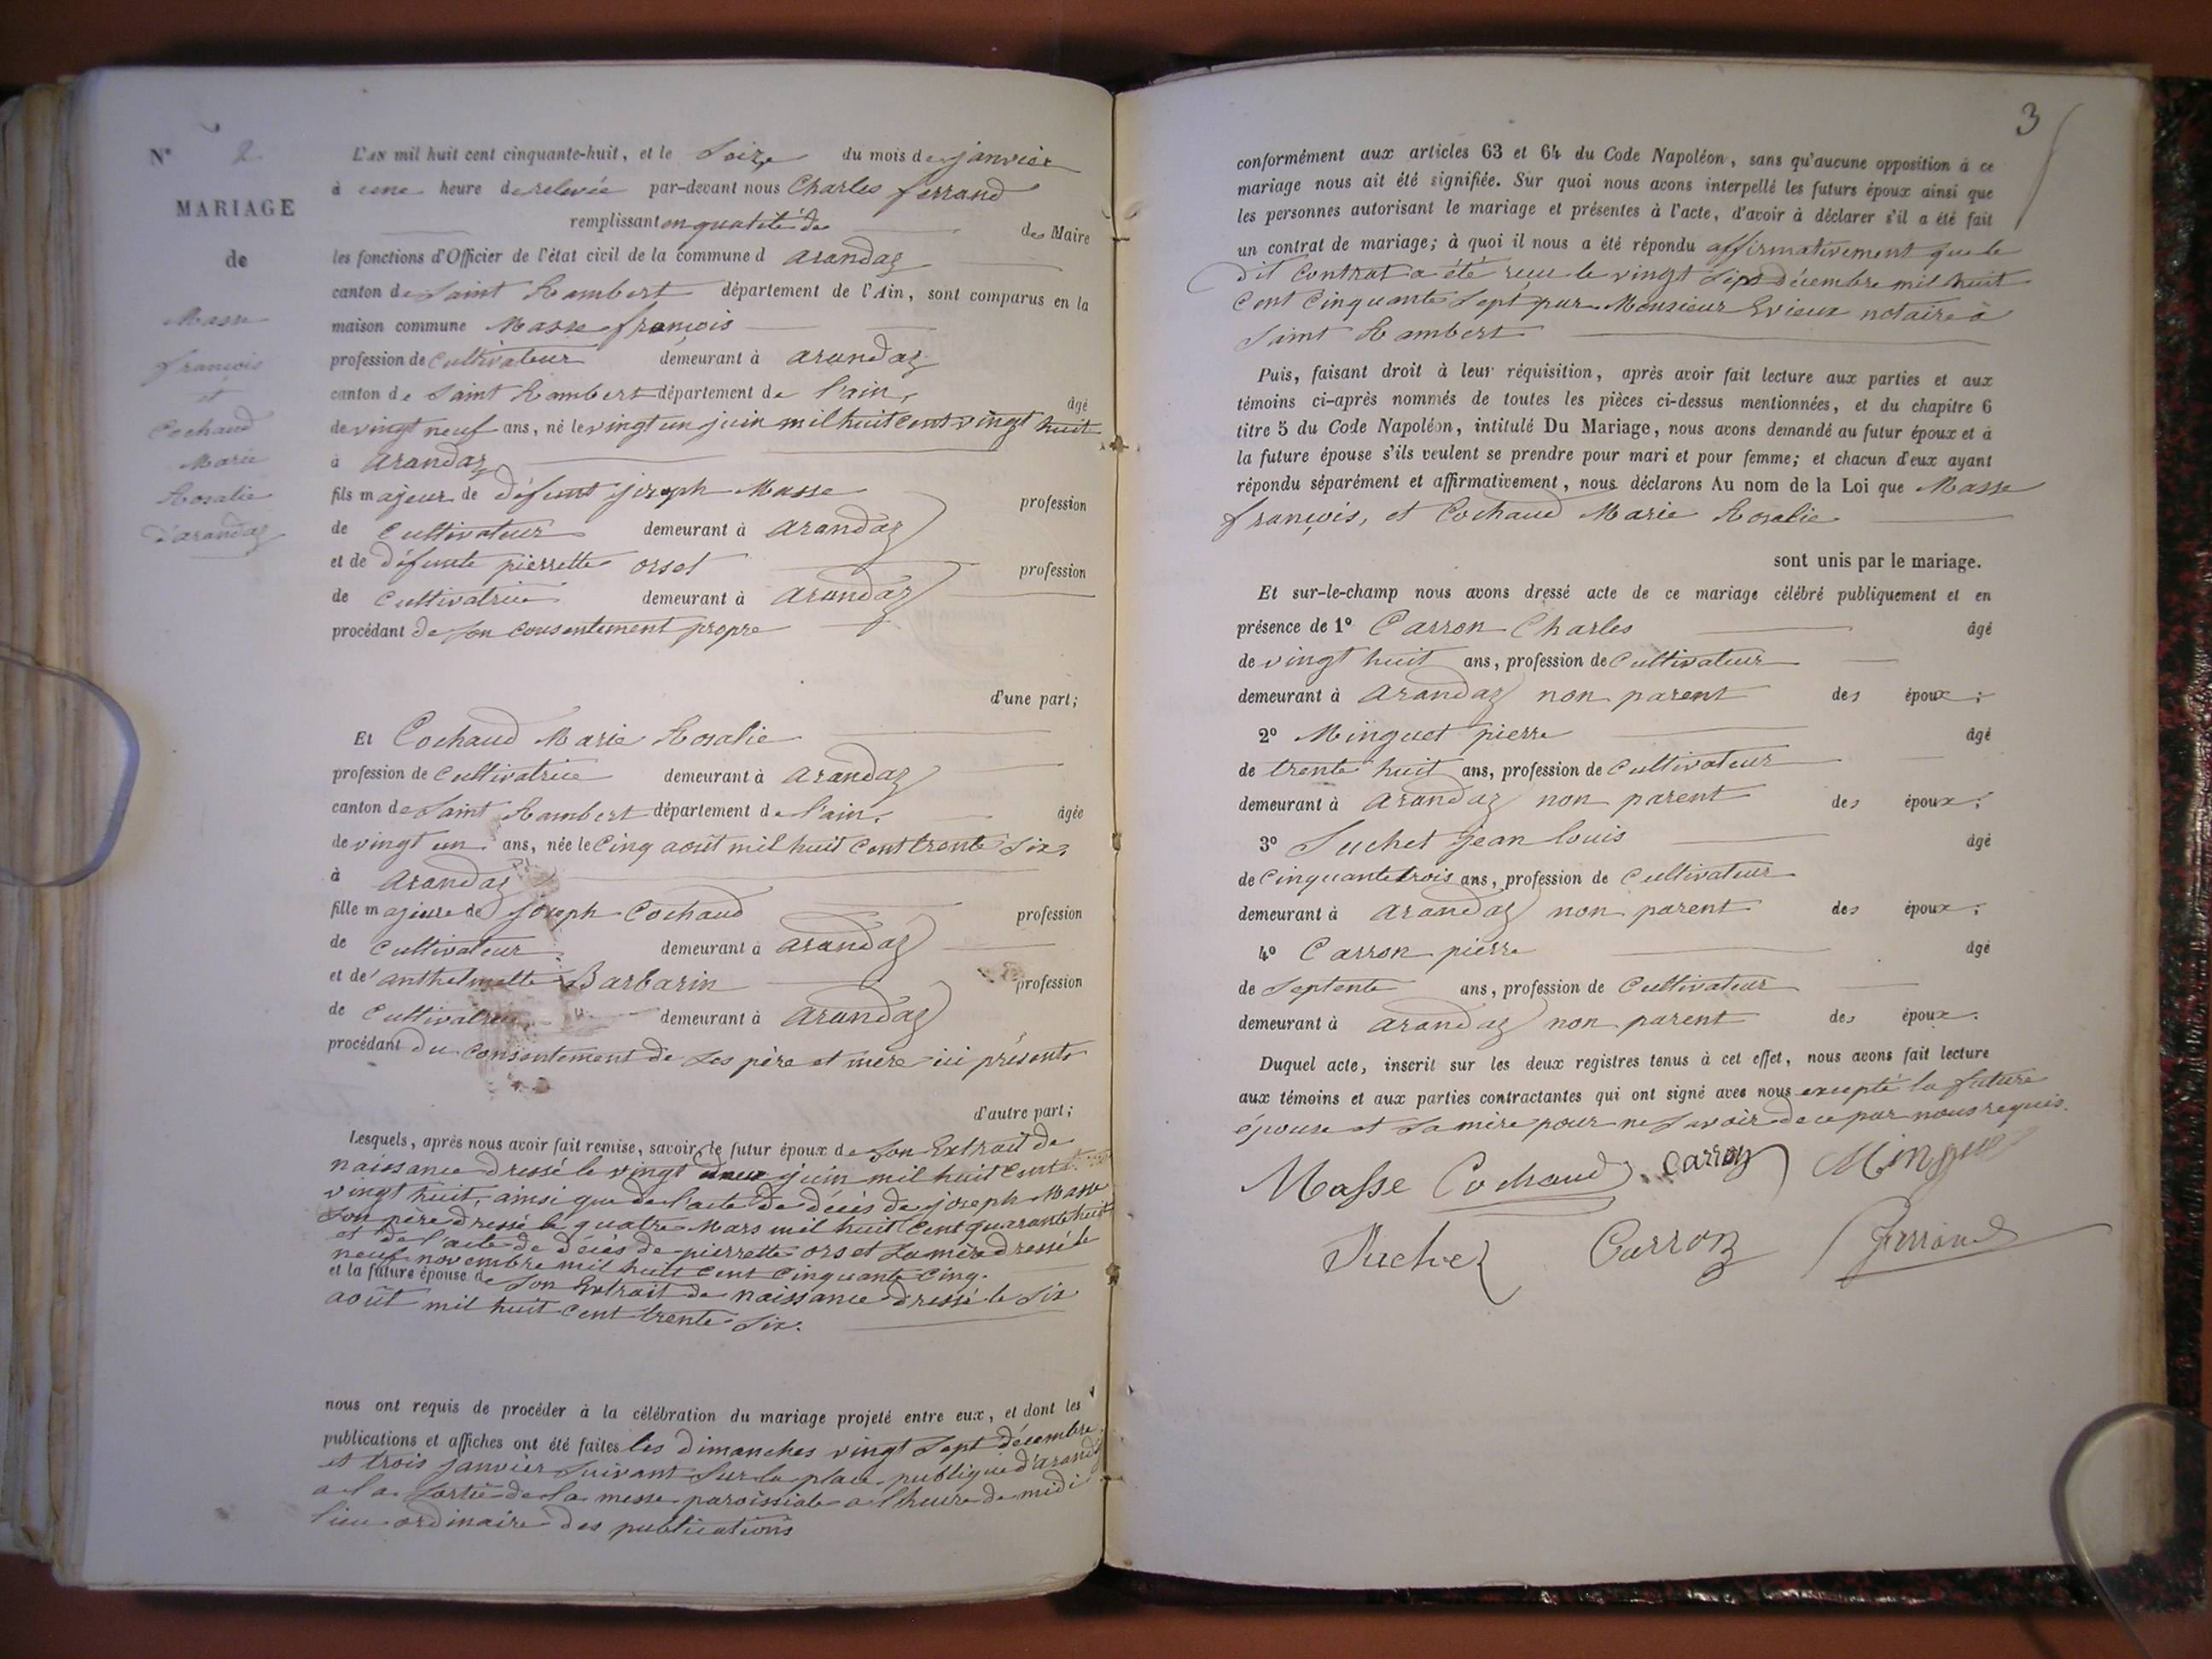 N° 2
MARIAGE
de
Masse
françois
et
Cochaud
Marie
Rosalie
D'arandaz
L'AN mil huit cent cinquante-huit, et le Seize du mois de janvier
à une heure de relevée par-devant nous Charles ferrand
remplissant en qualité de de Maire
les fonctions d'Officier de l'état civil de la commune d arandaz
canton de Saint Rambert département de l'Ain, sont comparus en la
maison commune Masse françois
profession de Cultivateur demeurant à arandaz
canton de Saint Rambert département de l'ain, âgé
de vingt neuf ans, né le vingt un juin mil huit Cent vingt huit
à arandaz
fils majeur de défunt joseph Masse profession
de Cultivateur demeurant à arandaz
et de défunte pierrette orset profession
de Cultivatrice demeurant à arandaz
procédant de son consentement propre
d'une part;
Et Cochaud Marie Rosalie
profession de Cultivatrice demeurant à arandaz
canton de Saint Rambert département de l'ain, âgée
de vingt un ans, née le Cinq août mil huit Cent trente Six,
à arandaz
fille majeure de joseph Cochaud profession
de Cultivateur demeurant à arandaz
et de anthelmette Barbarin profession
de Cultivatrice demeurant à arandaz
procédant du consentement de ses père et mère ici présents
d'autre part;
Lesquels, après nous avoir fait remise, savoir, le futur époux de son Extrait de
naissance dressé le vingt deux juin mil huit Cent
vingt huit, ainsi que de l'acte de décès de joseph Masse
son père dressé le quatre Mars mil huit Cent quarante huit
et de l'acte de décès de pierrette orset sa mère dressé le
neuf novembre mil huit cent Cinquante Cinq.
et la future épouse de son Extrait de naissance dressé le Six
août mil huit Cent trente Six.
nous ont requis de procéder à la célébration du mariage projeté entre eux, et dont les
publications et affiches ont été faites les dimanches vingt Sept décembre
et trois janvier Suivant Sur la place publique d'arandaz
a la Sortie de la messe paroissiale a l'heure de midi
lieu ordinaire des publications
3
conformément aux articles 63 et 64 du Code Napoléon, sans qu'aucune opposition à ce
mariage nous ait été signifiée. Sur quoi nous avons interpellé les futurs époux ainsi que
les personnes autorisant le mariage et présentes à l'acte, d'avoir à déclarer s'il a été fait
un contrat de mariage; à quoi il nous a été répondu affirmativement que le
dit Contrat a été reçu le vingt Sept décembre mil huit
Cent Cinquante Sept par Monsieur Evieux notaire à
Saint Rambert
Puis, faisant droit à leur réquisition, après avoir fait lecture aux parties et aux
témoins ci-après nommés de toutes les pièces ci-dessus mentionnées, et du chapitre 6
titre 5 du Code Napoléon, intitulé Du Mariage, nous avons demandé au futur époux et à
la future épouse s'ils veulent se prendre pour mari et pour femme; et chacun d'eux ayant
répondu séparément et affirmativement, nous déclarons Au nom de la Loi que Masse
françois, et Cochaud Marie Rosalie
sont unis par le mariage.
Et sur-le-champ nous avons dressé acte de ce mariage célébré publiquement et en
présence de 1° Carron Charles âgé
de vingt huit ans, profession de Cultivateur
demeurant à arandaz non parent des époux;
2° Minguet pierre âgé
de trente huit ans, profession de Cultivateur
demeurant à arandaz non parent des époux;
3° Suchet jean louis âgé
de Cinquante trois ans, profession de Cultivateur
demeurant à arandaz non parent des époux;
4° Carron pierre âgé
de Septente ans, profession de Cultivateur
demeurant à arandaz non parent des époux.
Duquel acte, inscrit sur les deux registres tenus à cet effet, nous avons fait lecture
aux témoins et aux parties contractantes qui ont signé avec nous excepté la future
épouse et sa mère pour ne savoir de ce par nous requis.
Masse Cochaud Carron Minguet
Suchet Carron ferrand